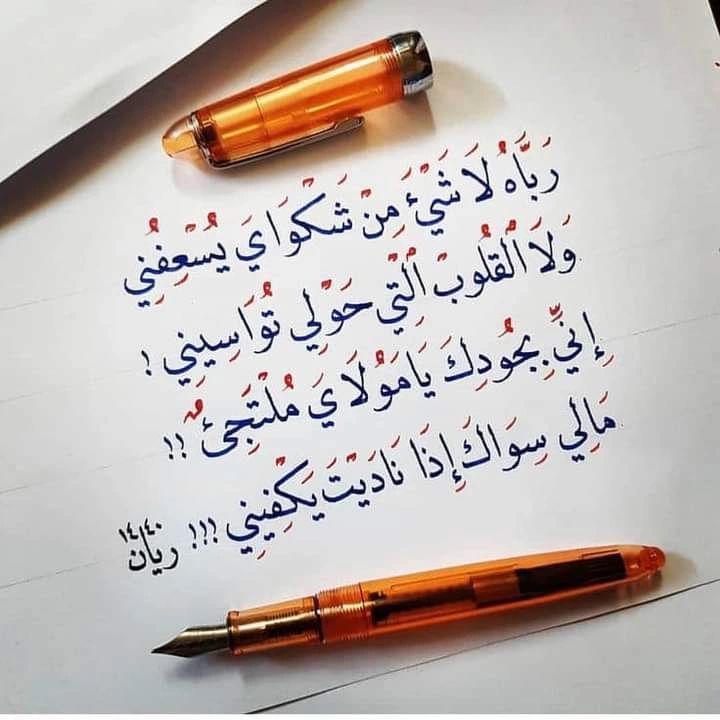 رَبَّاهُ لَا شَيْءَ مِنْ شَكْوَايَ يُسْعِفُنِي
وَلَا الْقُلُوبْ الَّتِي حَوْلِي تُوَاسِينِي !
إِنِّي بِجُودِكَ يَا مَوْلَايَ مُلْتَجِئٌ !!
مَالِي سِوَاكَ إِذَا نَادَيْتَ يَكْفِينِي !!!
ريان ١٤٤٠